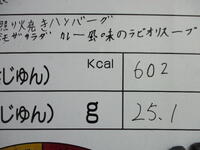 照り焼きハンバーグ
モザサラダ カレー風味のラビオリスープ
じゅん) Kcal 602
じゅん) g 25.1